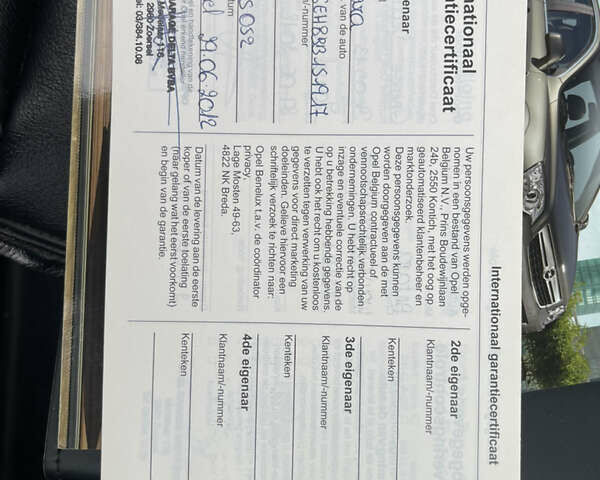 Internationaal garantiecertificaat
nationaal
ntiecertificaat
eigenaar
van de auto
/-nummer
29.06.2012
GARAGE DELTA BVBA
2980 Zoersel
Tel: 03/384.10.08
Uw persoonsgegevens werden opge-
nomen in een bestand van Opel
Belgium N.V., Prins Boudewijnlaan
24b, 2550 Kontich, met het oog op
geautomatiseerd klantenbeheer en
marktonderzoek.
Deze persoonsgegevens kunnen
worden doorgegeven aan de met
Opel Belgium contractueel of
vennootschapsrechtelijk verbonden
ondernemingen. U hebt recht op
inzage en eventuele correctie van de
op u betrekking hebbende gegevens.
U hebt ook het recht om u kosteloos
te verzetten tegen verwerking van uw
gegevens voor direct marketing
doeleinden. Gelieve hiervoor een
schriftelijk verzoek te richten naar:
Opel Benelux t.a.v. de coördinator
privacy,
Lage Mosten 49-63,
4822 NK Breda.
Datum van de levering aan de eerste
koper of van de eerste toelating
(naar gelang wat het eerst voorkomt)
en begin van de garantie.
2de eigenaar
Klantnaam/-nummer
Kenteken
3de eigenaar
Klantnaam/-nummer
Kenteken
4de eigenaar
Klantnaam/-nummer
Kenteken